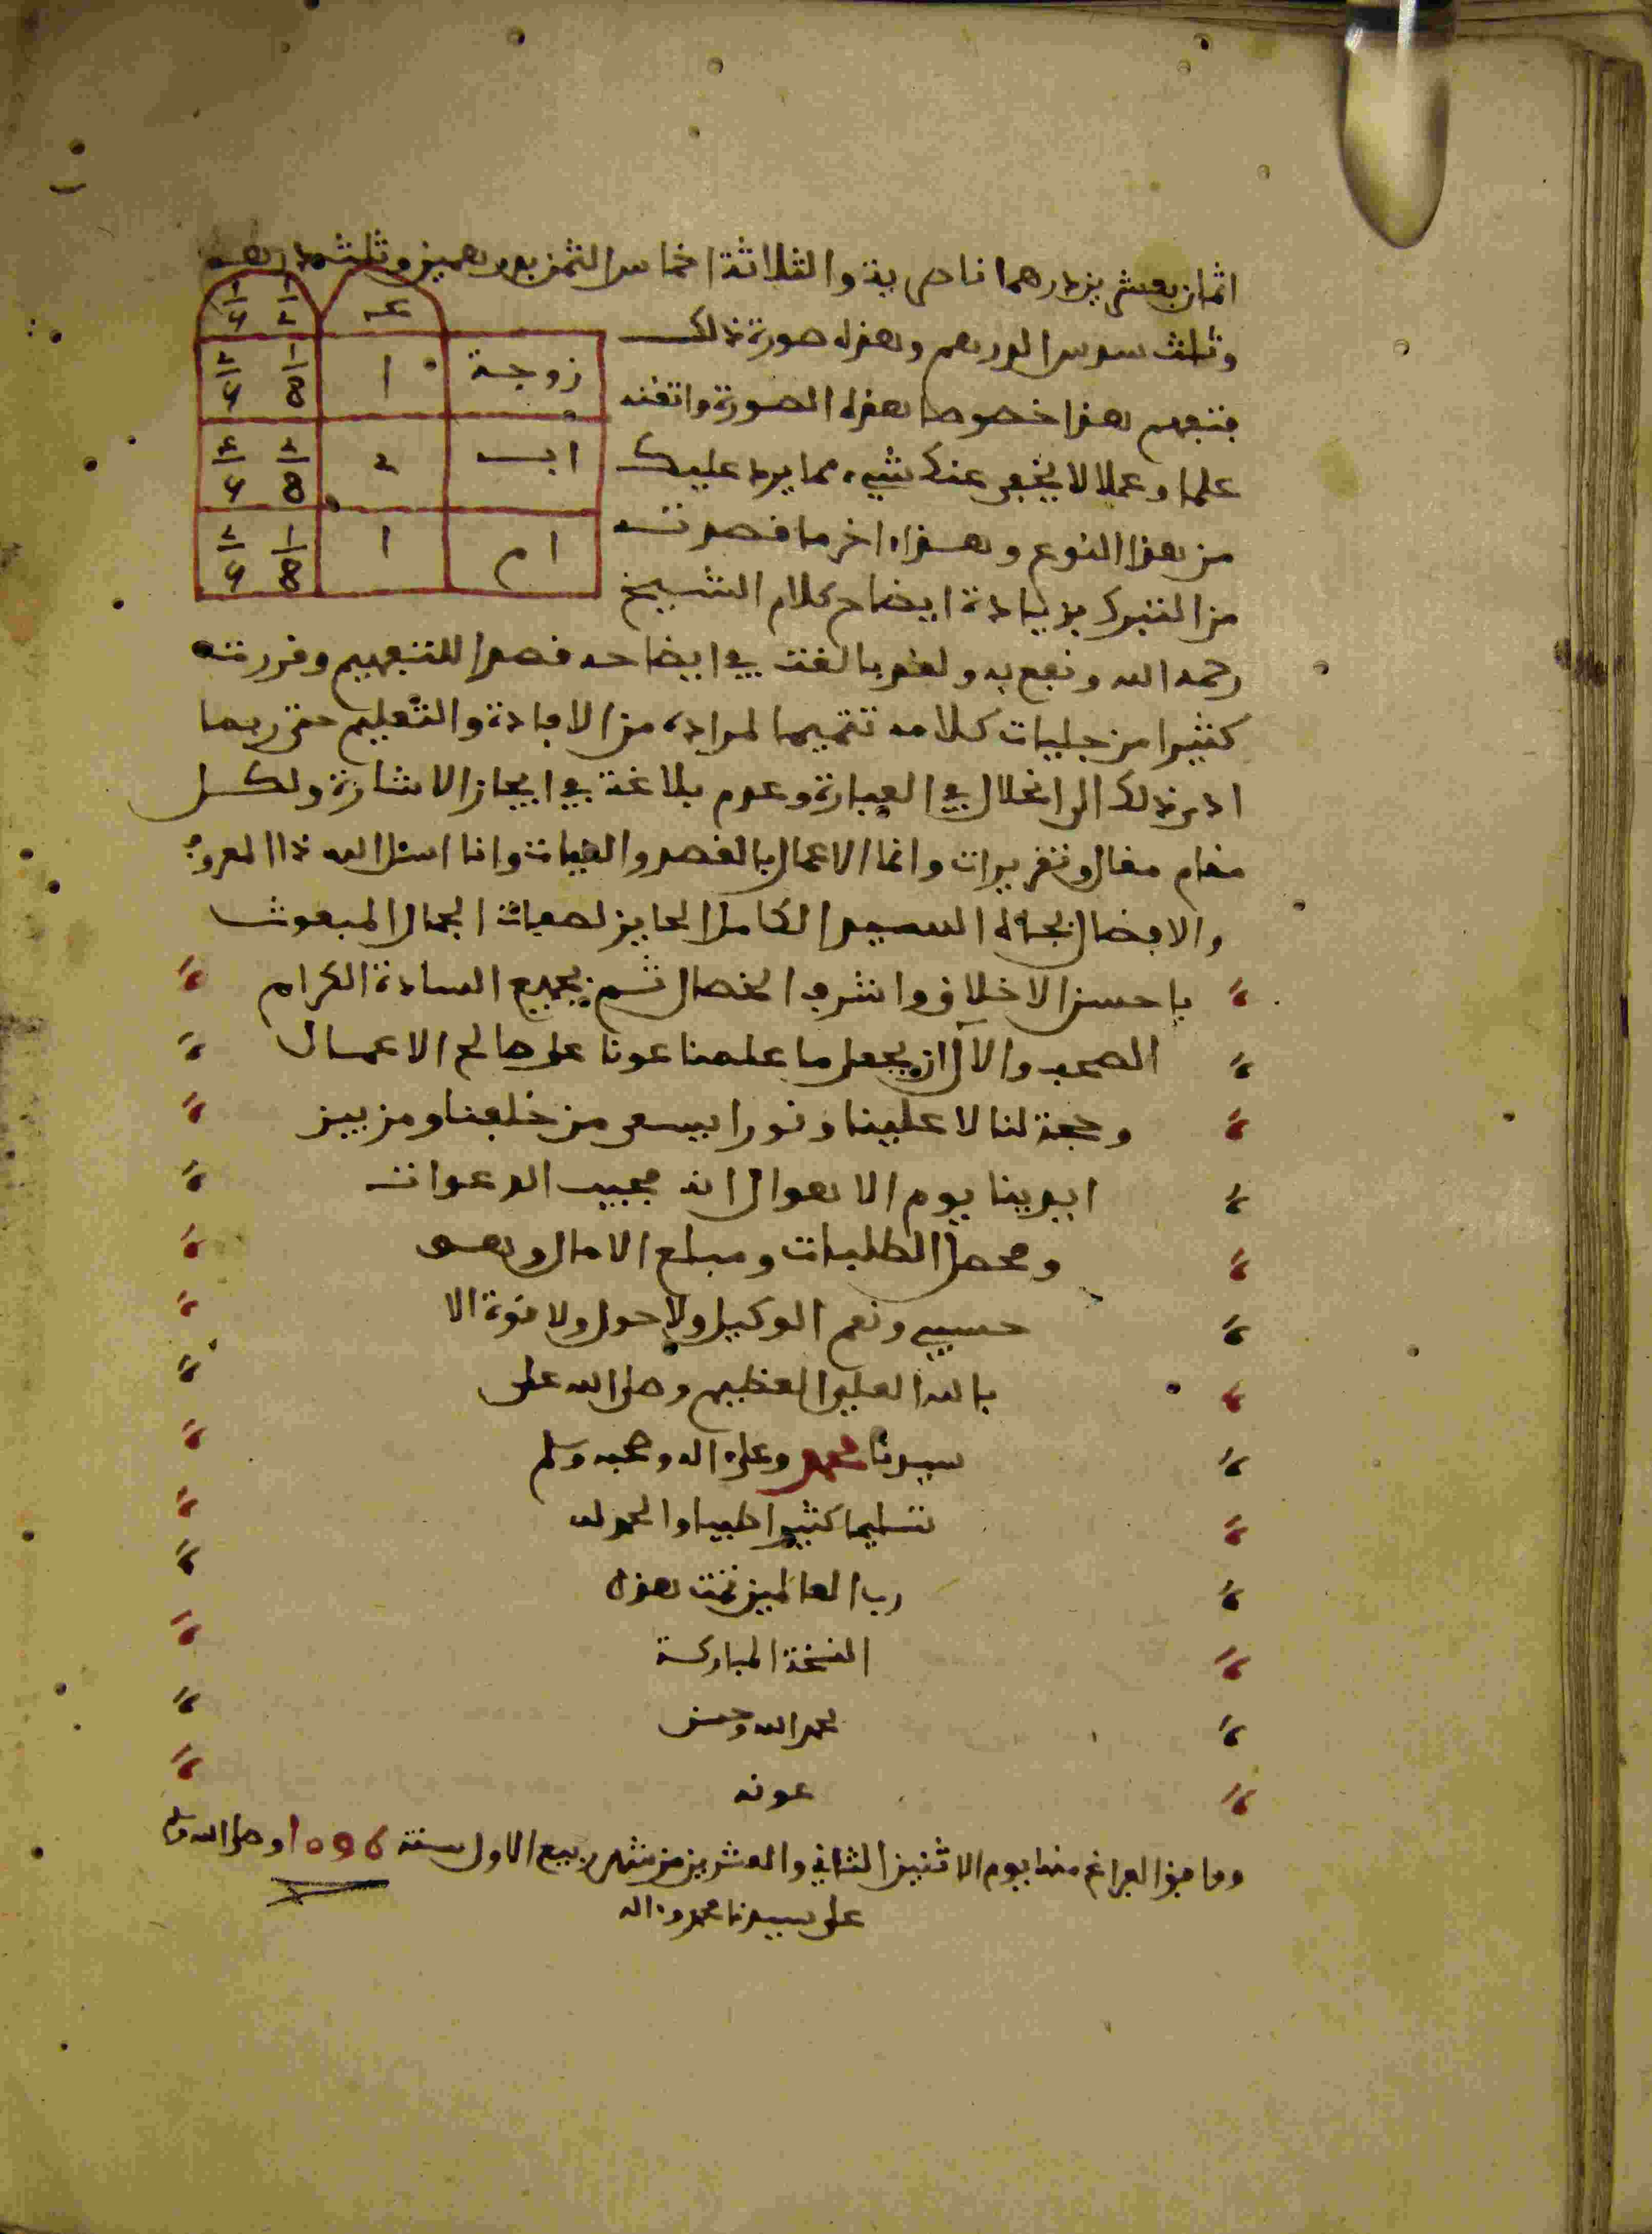 اثمان بعشرين درهما ناصرية والثلاثة اخماس الثمن بدرهمين وثلث درهم
وثلث سدس الدرهم وهذه صورة ذلك
فتفهم هذا خصوصا هذه الصورة واتقنه
علما وعملا لا يخفى عنك شيء مما يرد عليك
من هذا النوع وهذا اخر ما قصدت
من التبرك بزيادة ايضاح كلام الشيخ
رحمه الله ونفع به ولقد بالغت في ايضاحه قصدا للتفهيم وقررت
كثيرا من جليات كلامه تتميما لمراده من الافادة والتعليم حتى ربما
ادى ذلك الى انحلال في العبارة وعدم بلاغة في ايجاز الاشارة ولكل
مقام مقال وتقريرات وانما الاعمال بالقصد والنيات وانا اسئل الله ذا المعروف
والافضال بجاه السيد الكامل الحايز لصفات الجمال المبعوث
باحسن الاخلاق واشرف الخصال ثم بجميع السادة الكرام
الصحب والآل ان يجعل ما علمنا عونا على صالح الاعمال
وحجة لنا لا علينا ونورا يسعى من خلفنا ومن بين
ايدينا يوم الاهوال انه مجيب الدعوات
ومحصل الطلبات ومبلغ الامال وهو
حسبي ونعم الوكيل ولا حول ولا قوة الا
بالله العلي العظيم وصلى الله على
سيدنا محمد وعلى اله وصحبه وسلم
تسليما كثيرا طيبا والحمد لله
رب العالمين تمت هذه
النسخة المباركة
بحمد الله وحسن
عونه
ووافق الفراغ منها يوم الاثنين الثاني والعشرين من شهر ربيع الاول سنة 1096 وصلى الله وسلم
على سيدنا محمد واله
زوجة 1
اب 2
ام 1